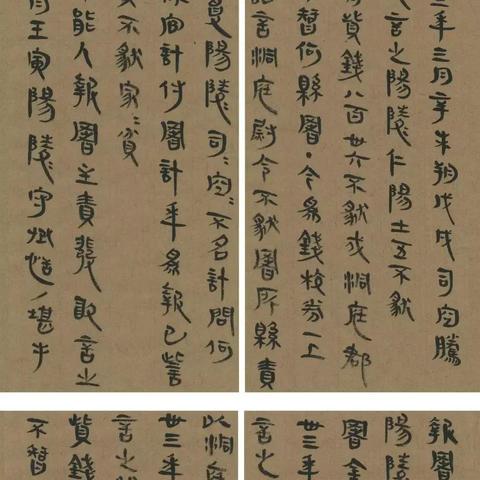 三年三月辛未朔戊戌司空騰
言之陽陵仁陽士五不豤
貲錢八百卅六不豤戍洞庭郡
智何縣署·今為錢校券一上
謁言洞庭尉令不豤署所縣責
受陽陵司=空=不名計問何
縣官計付署計年為報已訾
責不豤家=貧
能入報署主責發敢言之
月壬寅陽陵守丞恬ノ堪手
報署
陽陵
署金
卅三
言之
以洞庭
卅三年
言之
貲錢
不智